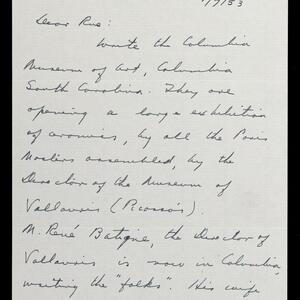 1/9/53
Dear Rue:
Write the Columbia
Museum of Art, Columbia
South Carolina. They are
opening a large exhibition
of ceramics, by all the Paris
Masters assembled, by the
Director of the Museum of
Vallauris (Picasso's).
M. René Batigne, the Director of
Vallauris is now in Columbia,
visiting the "folks". His wife